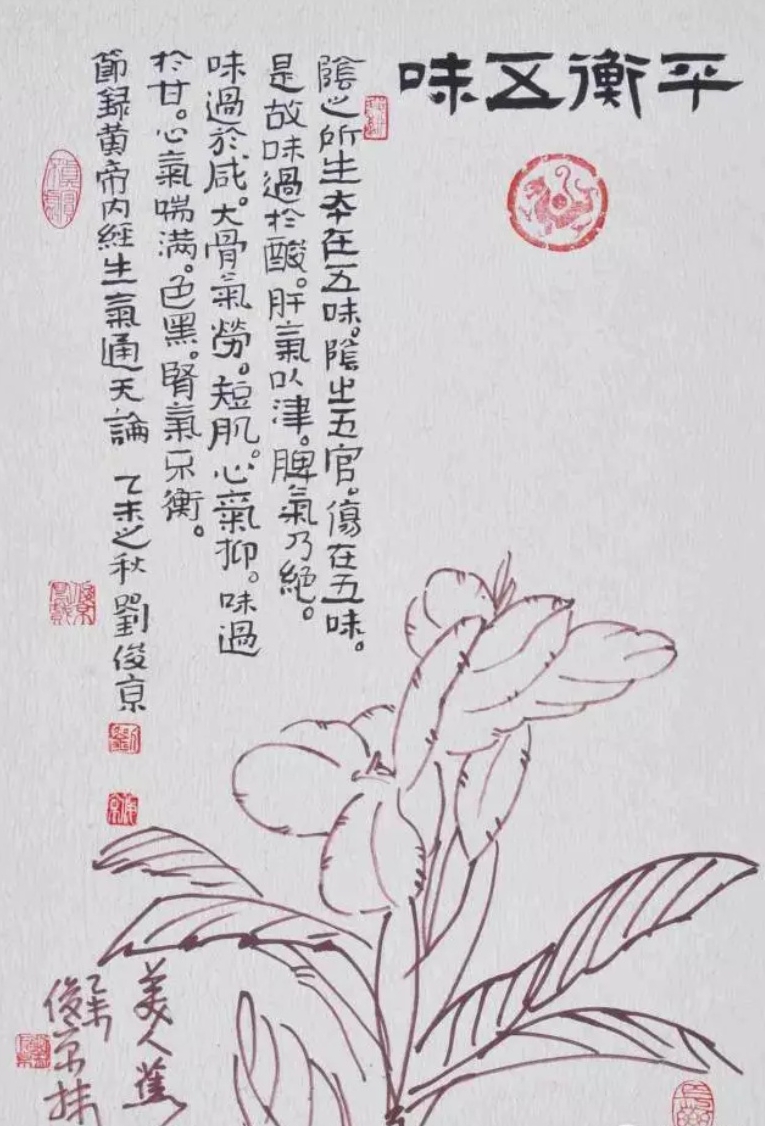 平衡五味
陰之所生。本在五味。陰之五官。傷在五味。
是故味過於酸。肝氣以津。脾氣乃絕。
味過於咸。大骨氣勞。短肌。心氣抑。味過
於甘。心氣喘满。色黑。腎氣不衡。
節録黄帝内經生氣通天論 乙未之秋 劉俊京
美人蕉
乙未
俊京抹